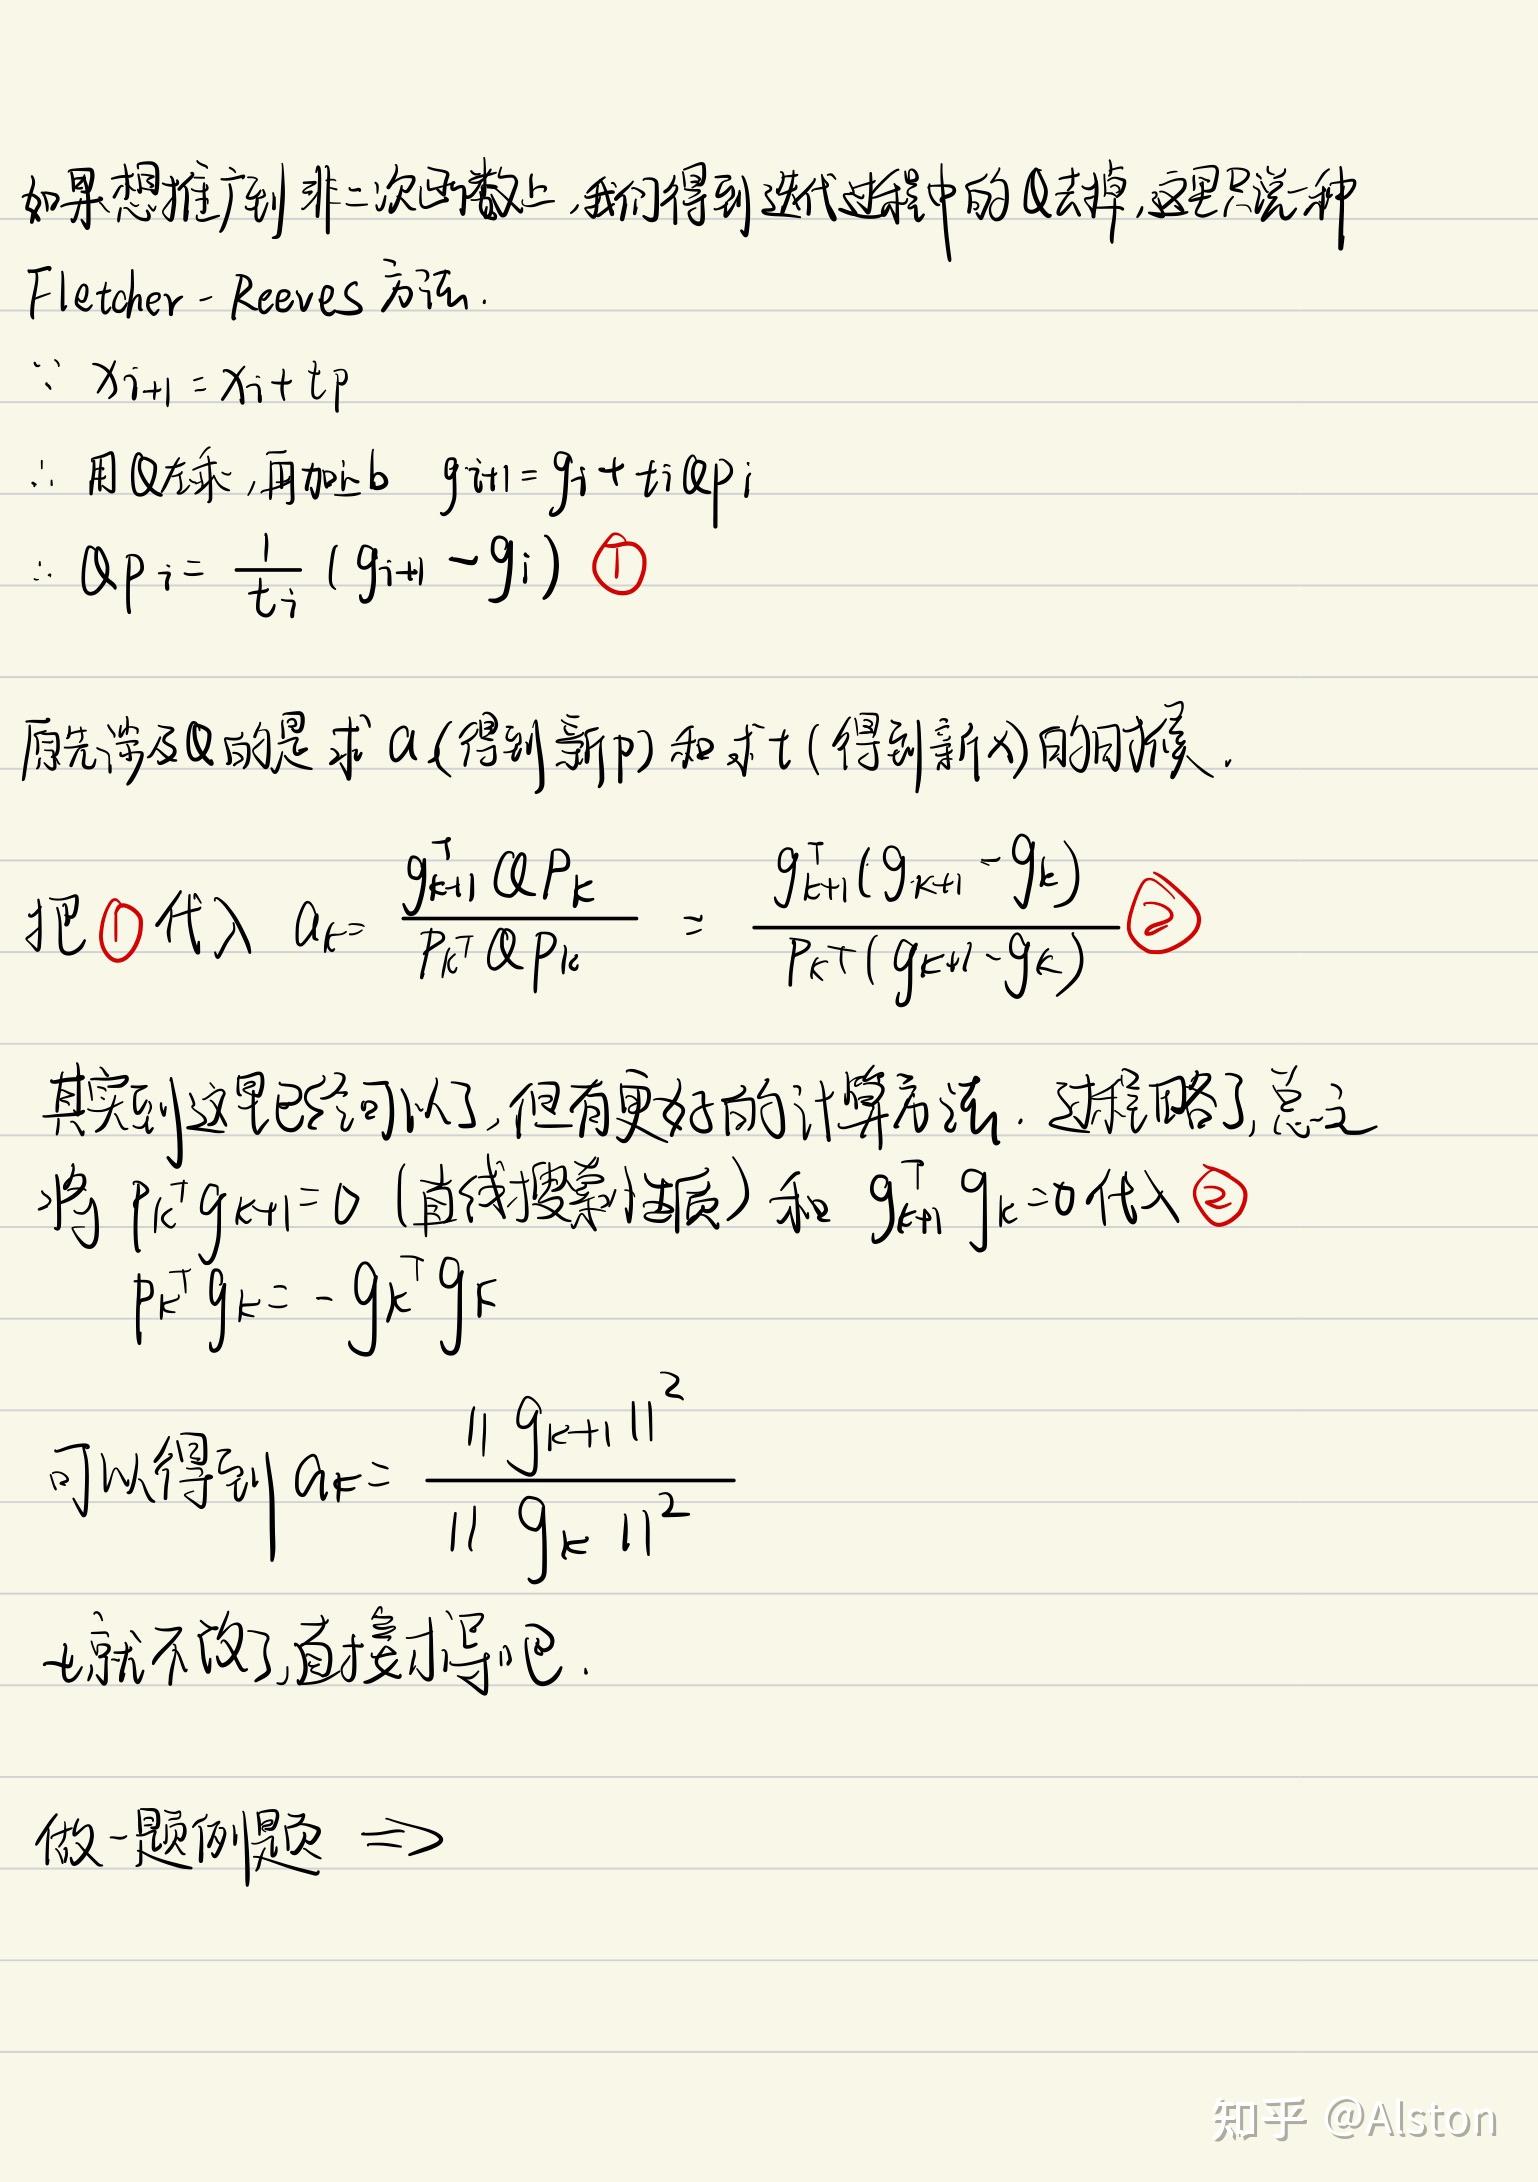 如果想推广到非二次函数上,我们得到迭代过程中的Q去掉,这里只说一种
Fletcher-Reeves方法.
∵ x_{i+1} = x_i + tp
∴ 用Q左乘,再加上b g_{i+1} = g_i + t_i Q p_i
∴ Q p_i = \frac{1}{t_i} (g_{i+1} - g_i) ①
原先涉及Q的是求a(得到新p)和求t(得到新x)的时候.
把①代入 a_k = \frac{g_{k+1}^T Q P_k}{P_k^T Q p_k} = \frac{g_{k+1}^T (g_{k+1} - g_k)}{P_k^T (g_{k+1} - g_k)} ②
其实到这里已经可以了,但有更好的计算方法. 过程略了,总之
将 p_k^T g_{k+1} = 0 (直线搜索性质) 和 g_{k+1}^T g_k = 0 代入②
p_k^T g_k = - g_k^T g_k
可以得到 a_k = \frac{||g_{k+1}||^2}{||g_k||^2}
t就不改了,直接求导吧.
做一题例题 ⇒
知乎 @Alston